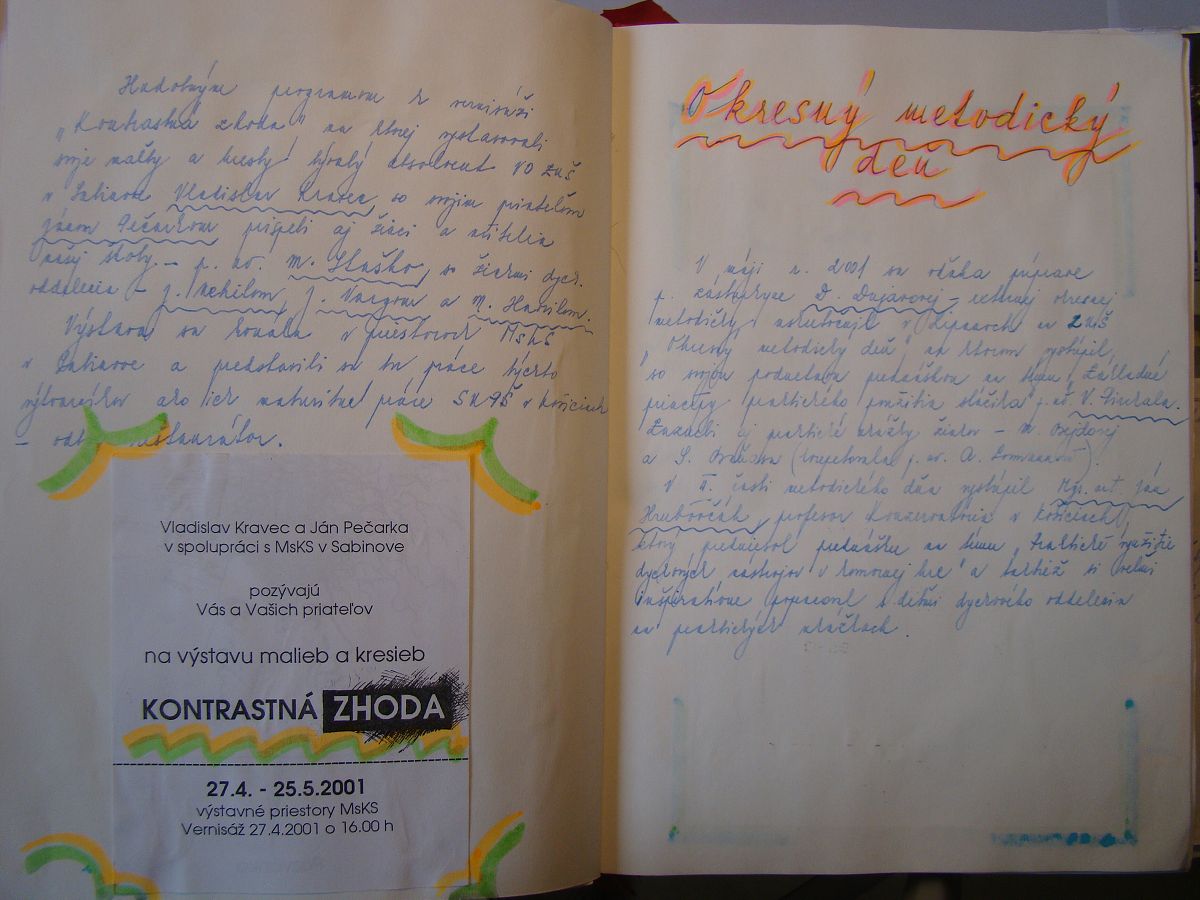 Hudobným programom k vernisáži
„Kontrastná zhoda" na ktorej vystavovali
svoje maľby a kresby bývalý absolvent VO ZUŠ
v Sabinove Vladislav Kravec, so svojim priateľom
Jánom Pečarkom prispeli aj žiaci a učitelia
našej školy – p. uč. M. Staško, so žiakmi dych.
oddelenia – J. J. Vargom a M.
Výstava sa konala v priestoroch MsKS
v Sabinove a predstavili sa tu práce týchto
výtvarníkov ako ich maturitné práce v Košiciach
– reštaurátor.
Vladislav Kravec a Ján Pečarka
v spolupráci s MsKS v Sabinove
pozývajú
Vás a Vašich priateľov
na výstavu malieb a kresieb
KONTRASTNÁ ZHODA
27.4. - 25.5.2001
výstavné priestory MsKS
Vernisáž 27.4.2001 o 16.00 h
Okresný metodický
deň
V máji r. 2001 sa vďaka príprave
p. zástupkyne D. Dujavovej – externej okresnej
metodičky, uskutočnil v Lipanoch na ZUŠ
„Okresný metodický deň" na ktorom vystúpil,
so svojou podnetnou prednáškou na tému „Základné
princípy praktického použitia sláčika" p. uč. V.
Zazneli aj praktické ukážky žiakov – M.
a S. (korepetovala p. uč. A.
V II. časti metodického dňa vystúpil Mgr. art. Ján
Hrubovčák, profesor Konzervatória v Košiciach,
ktorý predniesol prednášku na tému „Praktické využitie
dychových nástrojov v komornej hre" a taktiež si veľmi
inšpiratívne popracoval s deťmi dychového oddelenia
na praktických ukážkach.